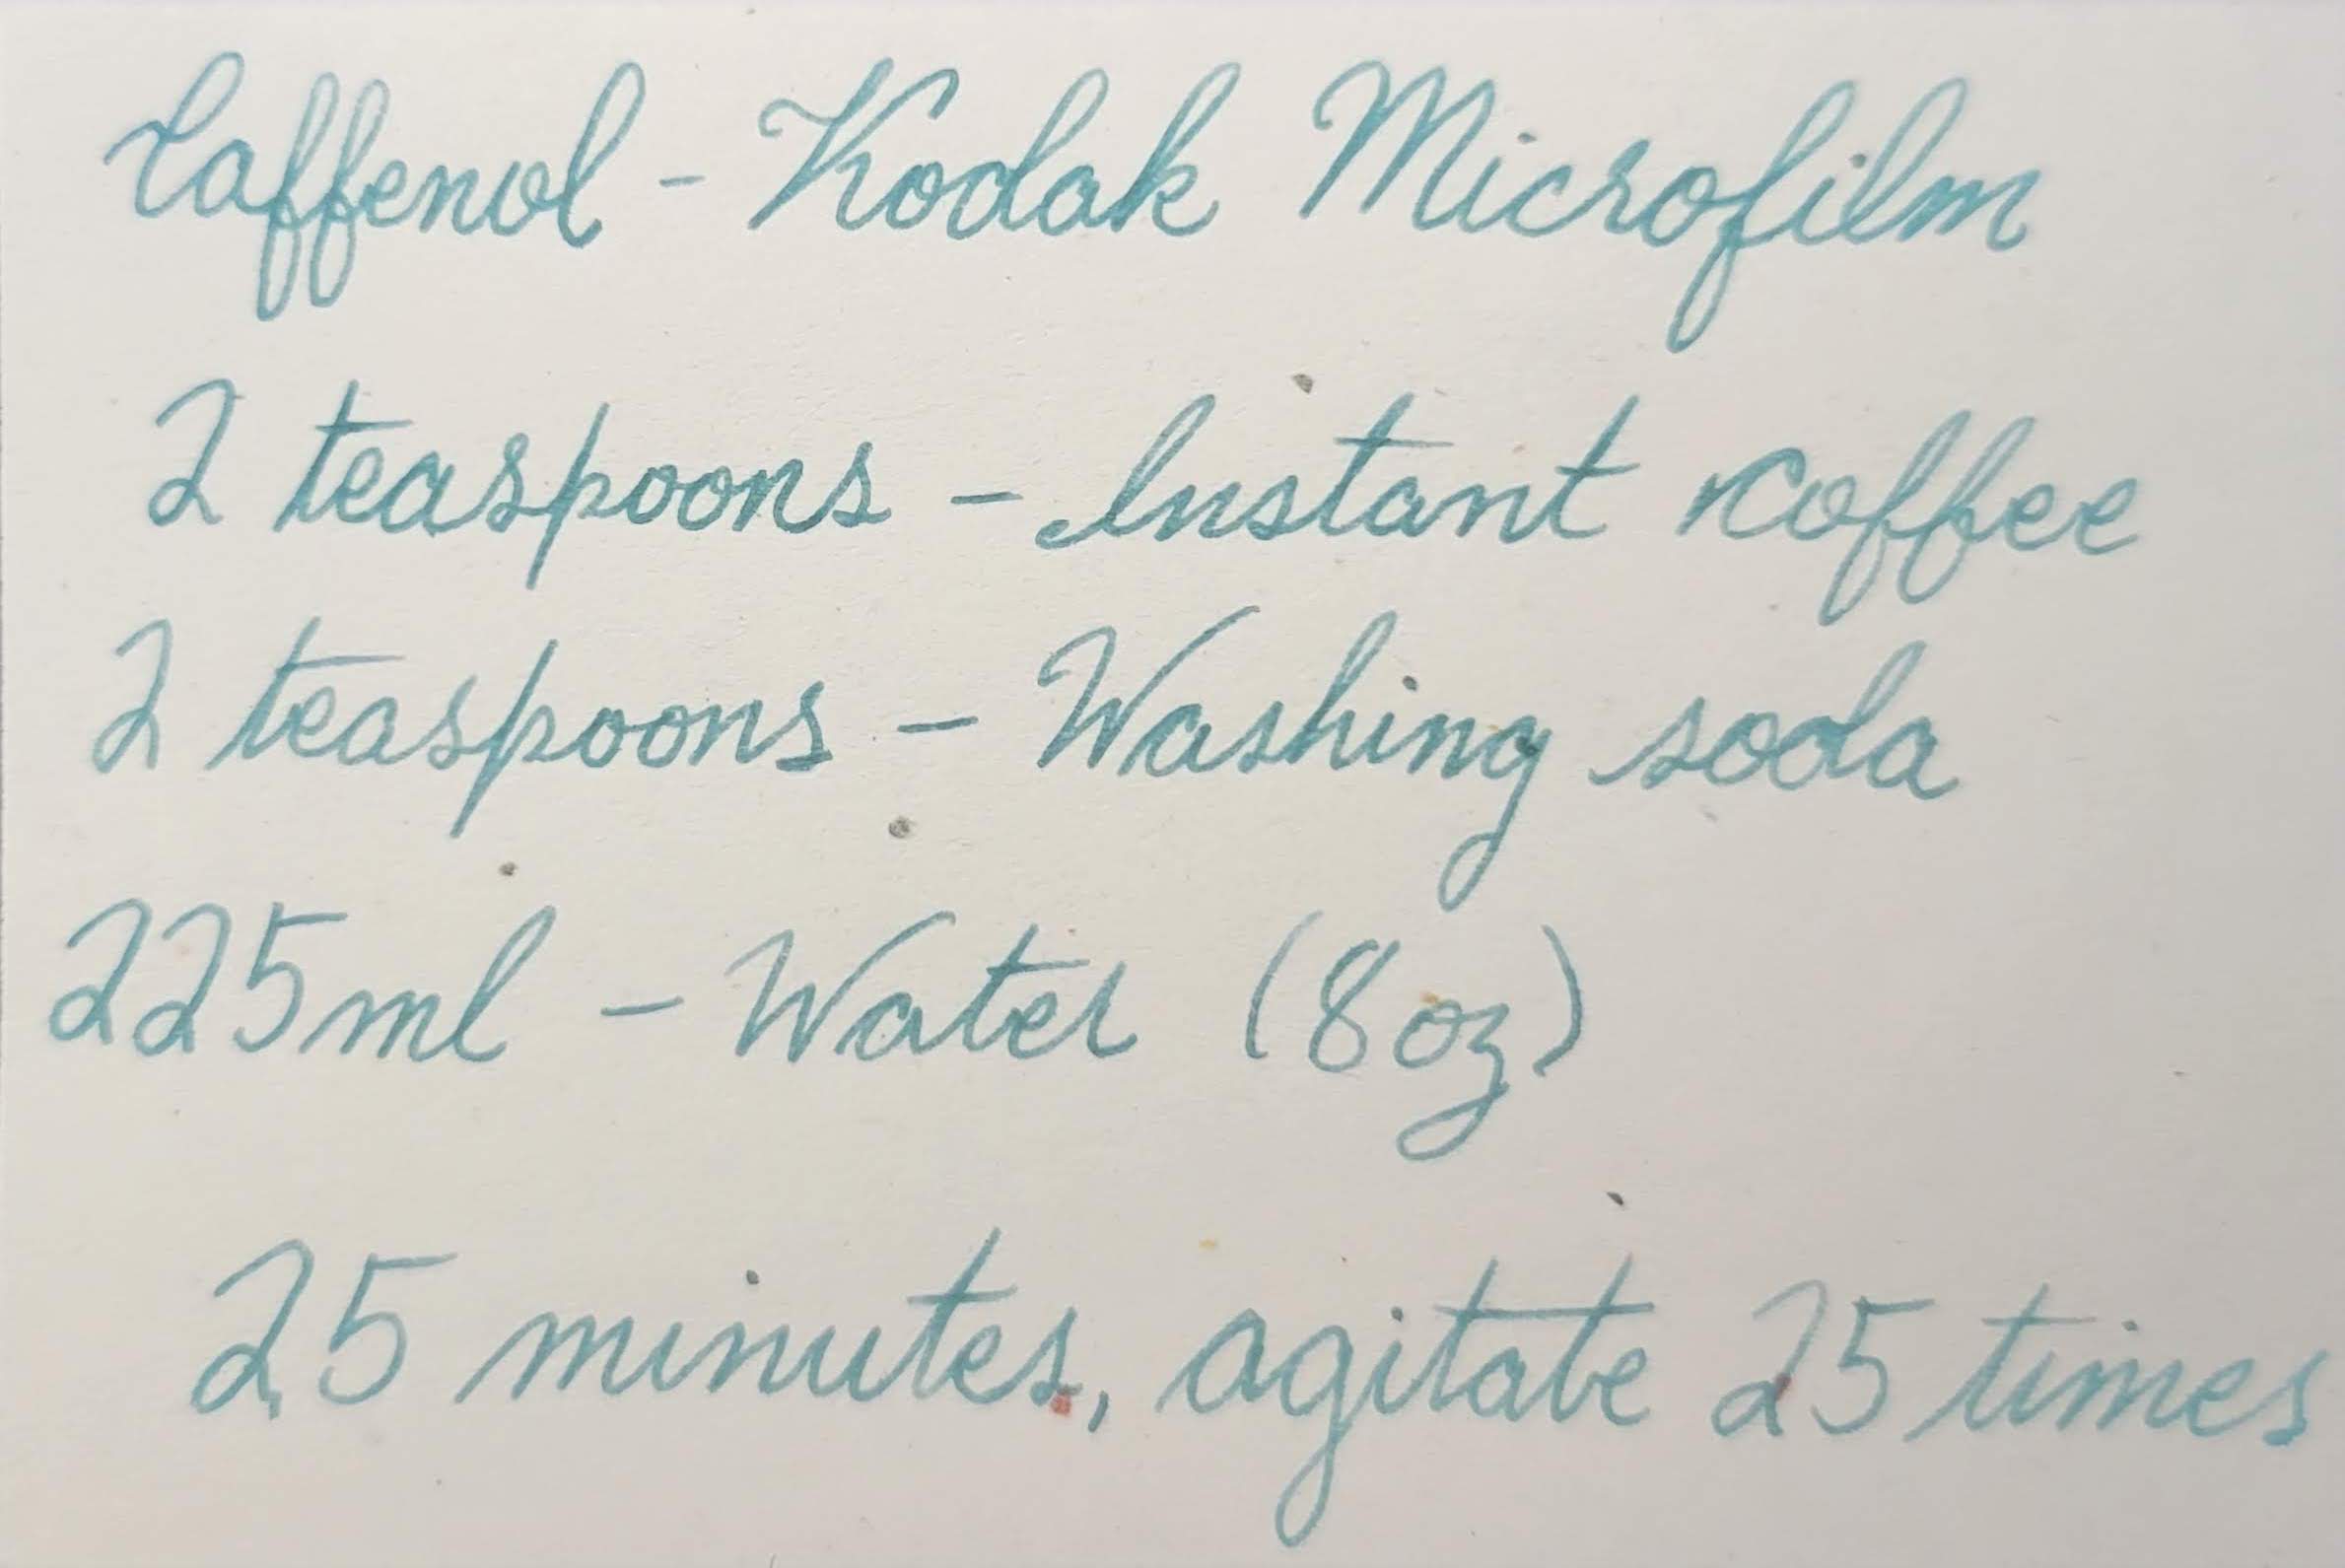 Caffenol - Kodak Microfilm
2 teaspoons - Instant Coffee
2 teaspoons - Washing soda
225ml - Water (8oz)
25 minutes, agitate 25 times